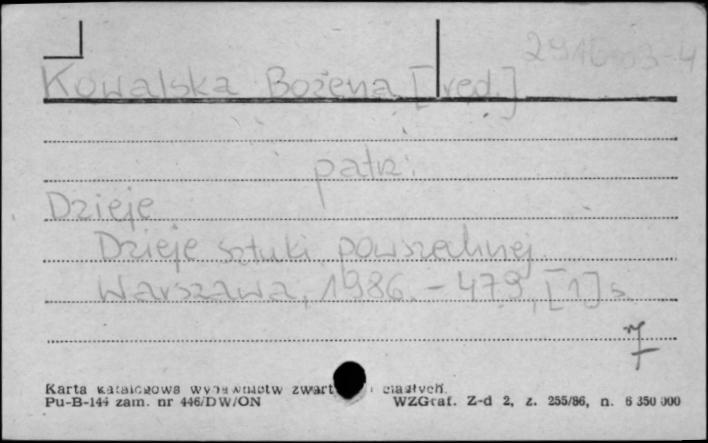 Kowalska Bożena [red.]
patrz:
Dzieje
Dzieje sztuki powszechnej.
Warszawa, 1986. – 479, [1] s.
7
Karta katalogowa wydawnictw zwartych i ciągłych.
Pu-B-144 zam. nr 446/DW/ON WZGraf. Z-d 2, z. 255/86, n. 6 350 000